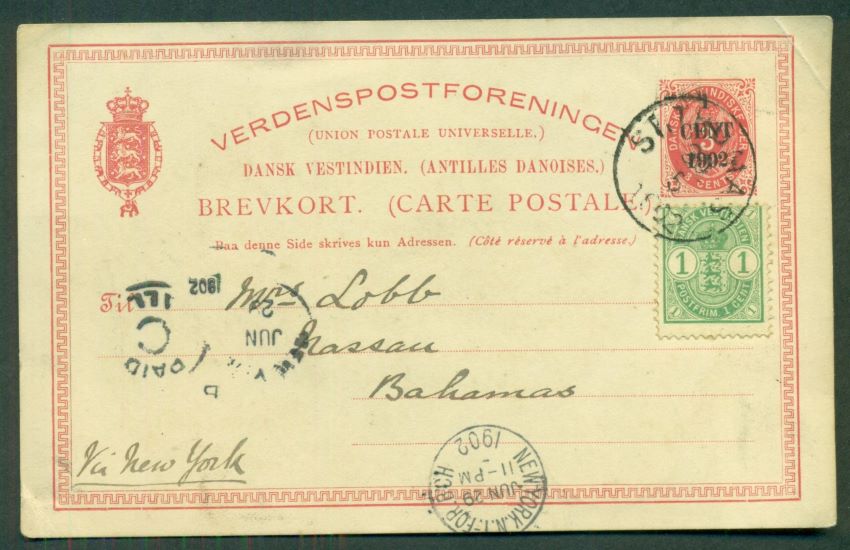 VERDENSPOSTFORENINGEN
(UNION POSTALE UNIVERSELLE.)
DANSK VESTINDIEN. (ANTILLES DANOISES.)
BREVKORT. (CARTE POSTALE)
Paa denne Side skrives kun Adressen. (Côté réservé à l'adresse.)
CENT
1902
3 CENTS
DANSK VESTINDIEN
1 1
POSTFRIM. 1 CENT
Til Mrs Lobb
Nassau
Bahamas
Via New York
1902
JUN
PAID
C
ILL
NEW YORK, N.Y. FOR BCH
JUN 29
11-PM
1902